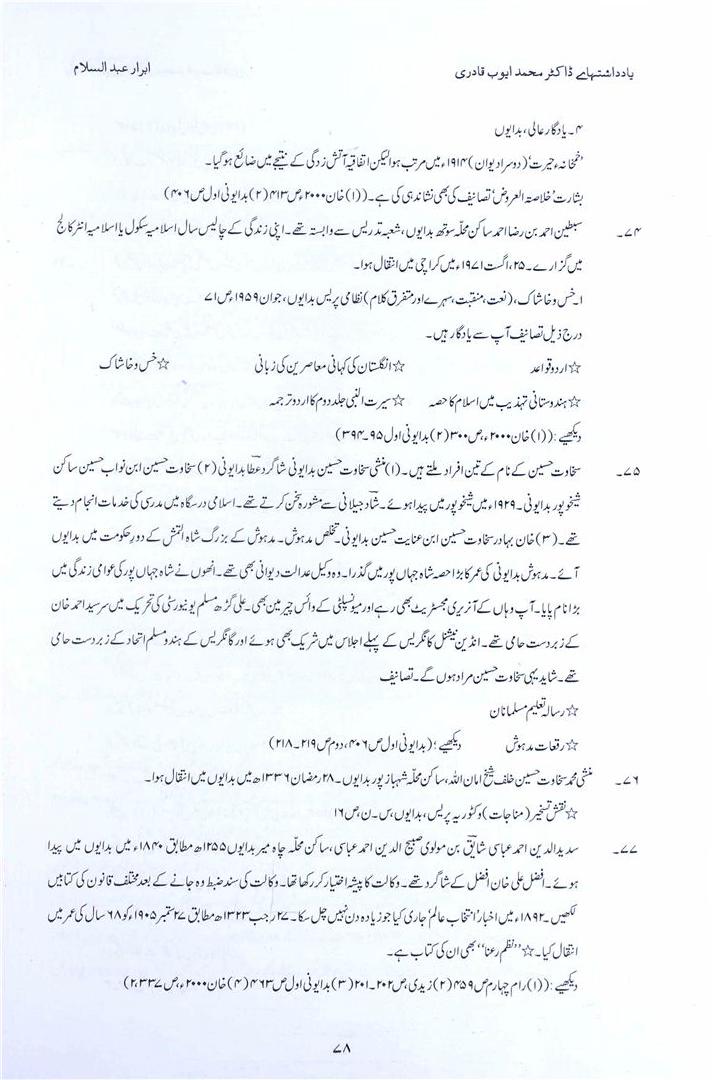 یادداشتہاے ڈاکٹر محمد ایوب قادری
ابرار عبدالسلام
۴۔ یادگار عالی، بدایوں
'خمخانۂ حیرت' (دوسرا دیوان) ۱۹۱۴ء میں مرتب ہوا لیکن اتفاقیہ آتش زدگی کے نتیجے میں ضائع ہو گیا۔
بشارت 'خلاصۃ العروض' تصانیف کی بھی نشاندہی کی ہے۔ ((۱) خان ۲۰۰۰ء، ص ۴۱۳ (۲) بدایونی اول ص ۴۰۶)
۷۴۔ سبطین احمد بن رضا احمد ساکن محلّہ سوتھ بدایوں، شعبہ تدریس سے وابستہ تھے۔ اپنی زندگی کے چالیس سال اسلامیہ سکول یا اسلامیہ انٹر کالج
میں گزارے۔ ۲۵، اگست ۱۹۷۱ء میں کراچی میں انتقال ہوا۔
۱۔ خس و خاشاک، (نعت، منقبت، سہرے اور متفرق کلام) نظامی پریس بدایوں، جوان ۱۹۵۹، ص ۷۱
درج ذیل تصانیف آپ سے یادگار ہیں۔
☆ اردو قواعد ☆ انگلستان کی کہانی معاصرین کی زبانی ☆ خس و خاشاک
☆ ہندوستانی تہذیب میں اسلام کا حصہ ☆ سیرت النبی جلد دوم کا اردو ترجمہ
دیکھیے: ((۱) خان ۲۰۰۰ء، ص ۳۰۰ (۲) بدایونی اول ۹۵۔۳۹۴)
۷۵۔ سخاوت حسین کے نام کے تین افراد ملتے ہیں۔ (۱) منشی سخاوت حسین بدایونی شاگرد عطا بدایونی (۲) سخاوت حسین ابن نواب حسین ساکن
شیخوپور بدایونی۔ ۱۹۲۹ء میں شیخوپور میں پیدا ہوئے۔ شاد جیلانی سے مشورہ سخن کرتے تھے۔ اسلامی درسگاہ میں مدرسی کی خدمات انجام دیتے
تھے۔ (۳) خان بہادر سخاوت حسین ابن عنایت حسین بدایونی۔ تخلص مدہوش۔ مدہوش کے بزرگ شاہ التمش کے دورِ حکومت میں بدایوں
آئے۔ مدہوش بدایونی کی عمر کا بڑا حصہ شاہ جہاں پور میں گذرا۔ وہ وکیل عدالت دیوانی بھی تھے۔ انھوں نے شاہ جہاں پور کی عوامی زندگی میں
بڑا نام پایا۔ آپ وہاں کے آنریری مجسٹریٹ بھی رہے اور میونسپلٹی کے وائس چیرمین بھی۔ علی گڑھ مسلم یونیورسٹی کی تحریک میں سرسید احمد خان
کے زبردست حامی تھے۔ انڈین نیشنل کانگریس کے پہلے اجلاس میں شریک بھی ہوئے اور گانگریس کے ہندو مسلم اتحاد کے زبردست حامی
تھے۔ شاید یہی سخاوت حسین مراد ہوں گے۔ تصانیف
☆ رسالہ تعلیم مسلمانان
☆ رقعات مدہوش دیکھیے؛ (بدایونی اول ص ۴۰۶، دوم ص ۲۱۹۔۲۱۸)
۷۶۔ منشی محمد سخاوت حسین خلف شیخ امان اللہ، ساکن محلّہ شہباز پور بدایوں۔ ۲۸ رمضان ۱۳۳۶ھ میں بدایوں میں انتقال ہوا۔
☆ نقش تسخیر (مناجات) وکٹوریہ پریس، بدایوں، س۔ن، ص ۱۶
۷۷۔ سدید الدین احمد عباسی شایق بن مولوی صبیح الدین احمد عباسی، ساکن محلّہ چاہ میر بدایوں ۱۲۵۵ھ مطابق ۱۸۴۰ء میں بدایوں میں پیدا
ہوئے۔ افضل علی خان افضل کے شاگرد تھے۔ وکالت کا پیشہ اختیار کر رکھا تھا۔ وکالت کی سند ضبط وہ جانے کے بعد مختلف قانون کی کتابیں
لکھیں۔ ۱۸۹۲ء میں اخبار 'انتخاب عالم' جاری کیا جو زیادہ دن نہیں چل سکا۔ ۲۷ رجب ۱۳۲۳ھ مطابق ۲۷ ستمبر ۱۹۰۵ء کو ۶۸ سال کی عمر میں
انتقال کیا۔ ☆ ''نظم رعنا'' بھی ان کی کتاب ہے۔
دیکھیے: ((۱) رام چہارم ص ۴۵۹ (۲) زیدی، ص ۲۰۲۔۲۰۱ (۳) بدایونی اول ص ۴۶۳ (۴) خان ۲۰۰۰ء، ص ۲،۳۳۷)
۷۸